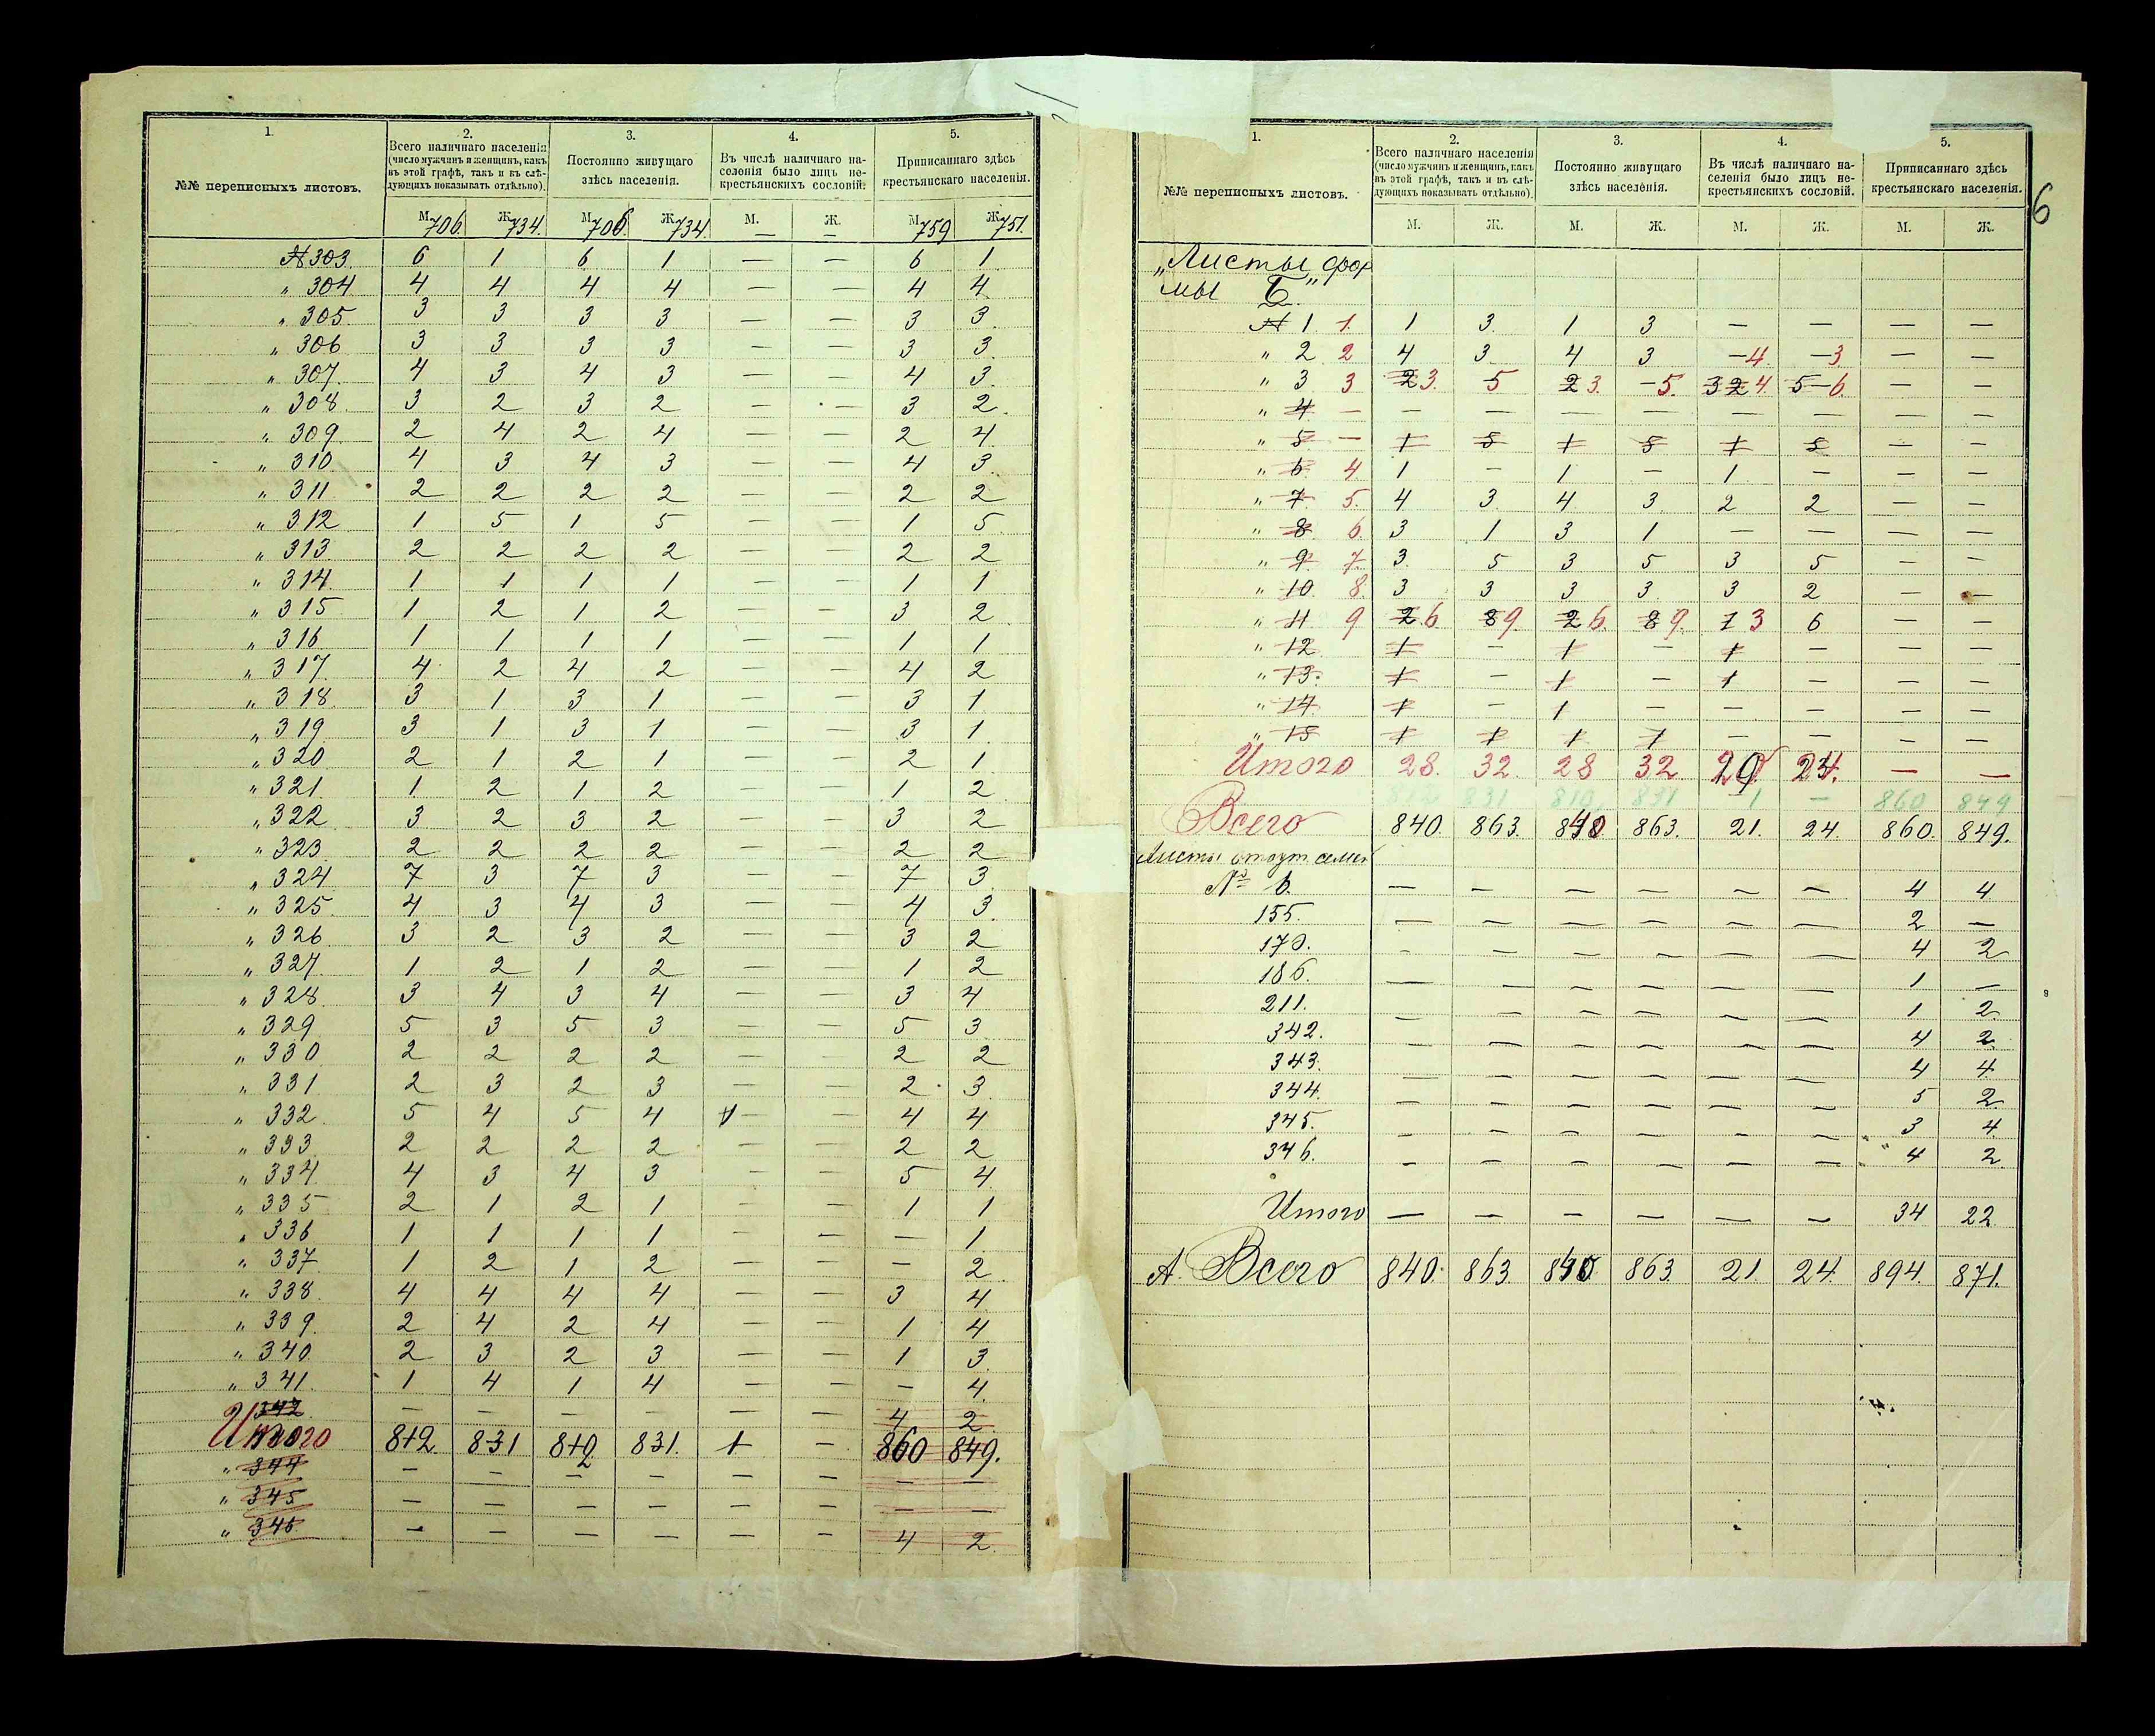 1. 2. 3. 4. 5.
№№ переписныхъ листовъ. Всего наличнаго населенія (число мужчинъ и женщинъ, какъ въ этой графѣ, такъ и въ слѣдующихъ показывать отдѣльно). Постоянно живущаго здѣсь населенія. Въ числѣ наличнаго населенія было лицъ не-крестьянскихъ сословій. Приписаннаго здѣсь крестьянскаго населенія.
М. Ж. М. Ж. М. Ж. М. Ж.
706. 734. 706. 734. — — 759 751.
№ 303. 6 1 6 1 — — 6 1
„ 304 4 4 4 4 — — 4 4
„ 305. 3 3 3 3 — — 3 3.
„ 306 3 3 3 3 — — 3 3.
„ 307. 4 3 4 3 — — 4 3.
„ 308. 3 2 3 2 — — 3 2.
„ 309. 2 4 2 4 — — 2 4.
„ 310. 4 3 4 3 — — 4 3.
„ 311 2 2 2 2 — — 2 2
„ 312 1 5 1 5 — — 1 5.
„ 313 2 2 2 2 — — 2 2
„ 314. 1 1 1 1 — — 1 1
„ 315 1 2 1 2 — — 3 2
„ 316 1 1 1 1 — — 1 1
„ 317 4 2 4 2 — — 4 2
„ 318. 3 1 3 1 — — 3 1
„ 319 3 1 3 1 — — 3 1.
„ 320 2 1 2 1 — — 2 1
„ 321 1 2 1 2 — — 1 2
„ 322 3 2 3 2 — — 3 2
„ 323 2 2 2 2 — — 2 2
„ 324 7 3 7 3 — — 7 3
„ 325 4 3 4 3 — — 4 3.
„ 326 3 2 3 2 — — 3 2
„ 327. 1 2 1 2 — — 1 2
„ 328. 3 4 3 4 — — 3 4
„ 329 5 3 5 3 — — 5 3
„ 330 2 2 2 2 — — 2 2
„ 331 2 3 2 3 — — 2 3.
„ 332 5 4 5 4 1 — — 4 4
„ 333 2 2 2 2 — — 2 2
„ 334 4 3 4 3 — — 5 4.
„ 335 2 1 2 1 — — 1 1
„ 336 1 1 1 1 — — — 1
„ 337 1 2 1 2 — — — 2
„ 338. 4 4 4 4 — — 3 4
„ 339. 2 4 2 4 — — 1 4
„ 340. 2 3 2 3 — — 1 3
„ 341. 1 4 1 4 — — — 4.
342 — — — — — — 4 2
Итого 812 831 812 831. 1 — 860 849.
„ 344 — — — — — — — —
„ 345 — — — — — — — —
„ 346 — — — — — — 4 2.
6
1. 2. 3. 4. 5.
№№ переписныхъ листовъ. Всего наличнаго населенія (число мужчинъ и женщинъ, какъ въ этой графѣ, такъ и въ слѣдующихъ показывать отдѣльно). Постоянно живущаго здѣсь населенія. Въ числѣ наличнаго населенія было лицъ не-крестьянскихъ сословій. Приписаннаго здѣсь крестьянскаго населенія.
М. Ж. М. Ж. М. Ж. М. Ж.
„Листы фор
мы Б"
№ 1 1. 1 3. 1 3 — — — —
„ 2 2 4 3. 4 3 —4 —3 — —
„ 3 3 2 3. 5 2 3. —5. 3 2 4. 5—6. — —
„ 4 — — — — — — — — —
„ 5 — 1 5 1 5 1 5 — —
„ 6 4 1 — 1 — 1 — — —
„ 7 5. 4 3. 4 3. 2 2 — —
„ 8 6. 3 1 3 1 — — — —
„ 9 7. 3. 5 3 5 3 5 — —
„ 10 8. 3 3 3 3. 3 2 — —
„ 11 9 2 6 8 9. 2 6. 8 9. 1 3 6 — —
„ 12 1 — 1 — 1 — — —
„ 13. 1 — 1 — 1 — — —
„ 14. 1 — 1 — — — — —
„ 15 1 1 1 1 — — — —
Итого 28. 32. 28 32. 20 24. — —
812 831 810 831 1 — 860 849
Всего 840. 863. 840 863. 21. 24. 860. 849.
Листы отсут семей
№ 6. — — — — — — 4 4
155. — — — — — — 2 —
170. — — — — — — 4 2
186. — — — — — — 1 —
211. — — — — — — 1 2.
342. — — — — — — 4 2
343. — — — — — — 4 4.
344. — — — — — — 5 2.
345. — — — — — — 3 4
346. — — — — — — 4 2.
Итого — — — — — — 34 22
А. Всего 840. 863. 840 863. 21 24. 894. 871.